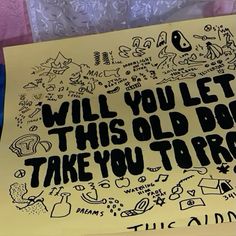 MAC
WILL YOU LET
THIS OLD DO
TAKE YOU TO PRO
WATCHING
HIM
DREAMS
THIS